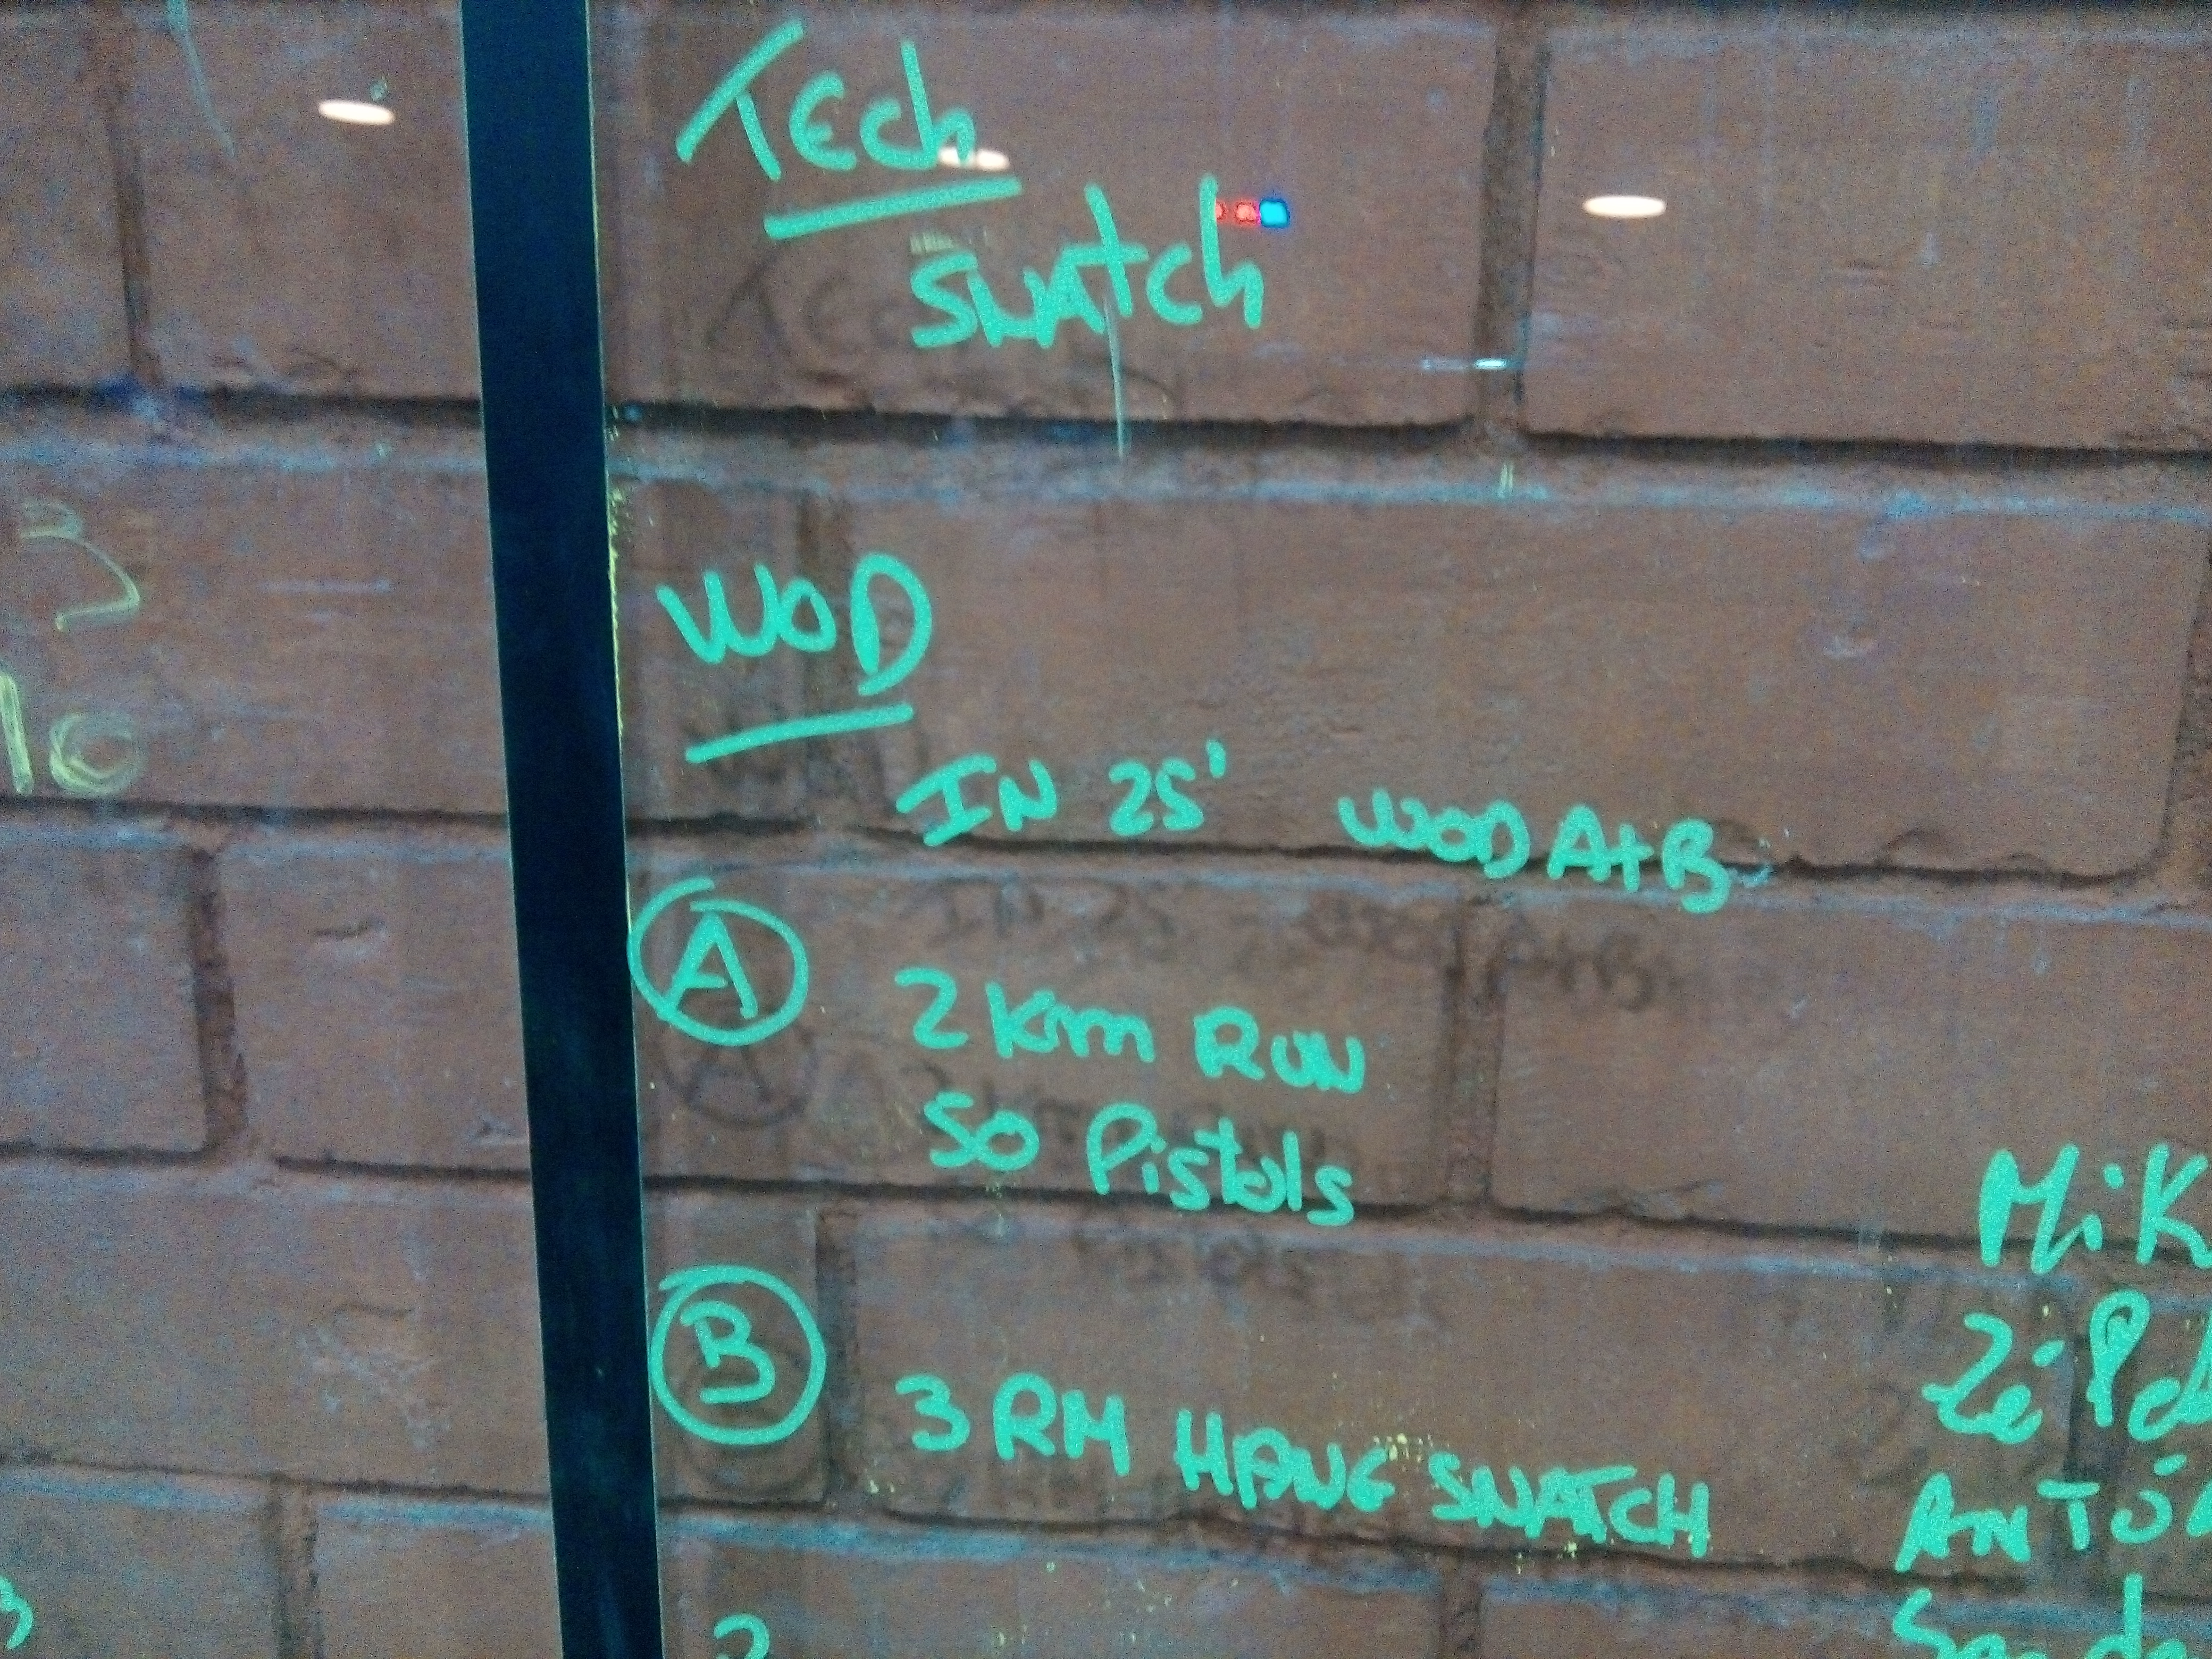 Tech
Snatch
WOD
IN 25' WOD A+B
A
2 Km RUN
50 Pistols
B
3 RM HANG SNATCH
3
10